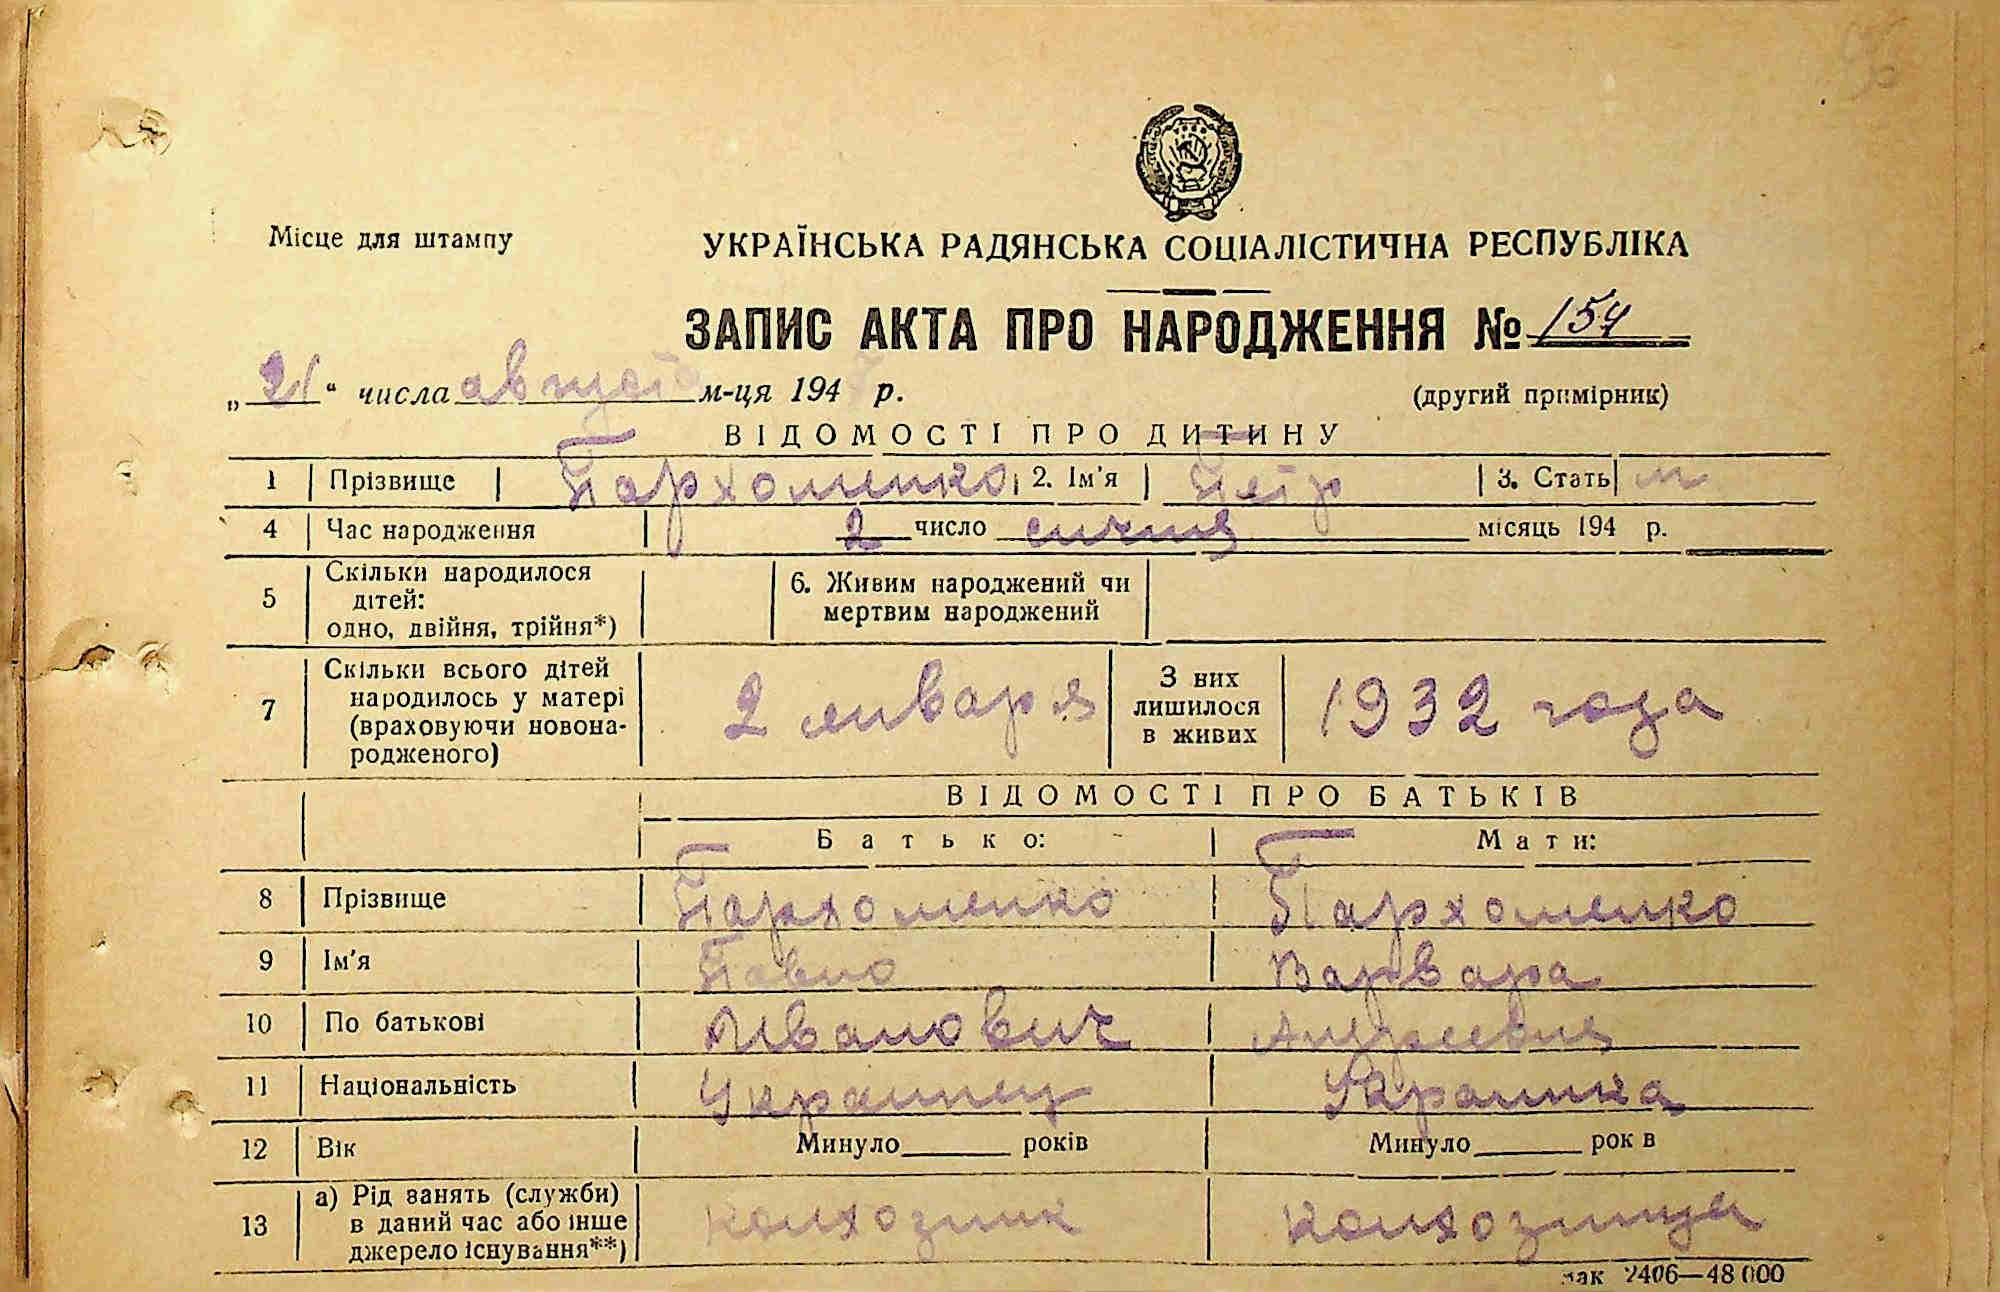 Місце для штампу
УКРАЇНСЬКА РАДЯНСЬКА СОЦІАЛІСТИЧНА РЕСПУБЛІКА
ЗАПИС АКТА ПРО НАРОДЖЕННЯ № 154
„21“ числа август м-ця 194 р.
(другий примірник)
ВІДОМОСТІ ПРО ДИТИНУ
1 Прізвище Пархоменко 2. Ім'я Петр 3. Стать м
4 Час народження 2 число сичня місяць 194 р.
5 Скільки народилося дітей: одно, двійня, трійня*) 6. Живим народжений чи мертвим народжений
7 Скільки всього дітей народилось у матері (враховуючи новонародженого) 2 января З них лишилося в живих 1932 года
ВІДОМОСТІ ПРО БАТЬКІВ
Батько: Мати:
8 Прізвище Пархоменко Пархоменко
9 Ім'я Павло Варвара
10 По батькові Иванович Андреевна
11 Національність Украинец Украинка
12 Вік Минуло років Минуло рок в
13 а) Рід занять (служби) в даний час або інше джерело існування**) колхозник колхозница
зак 2406—48 000